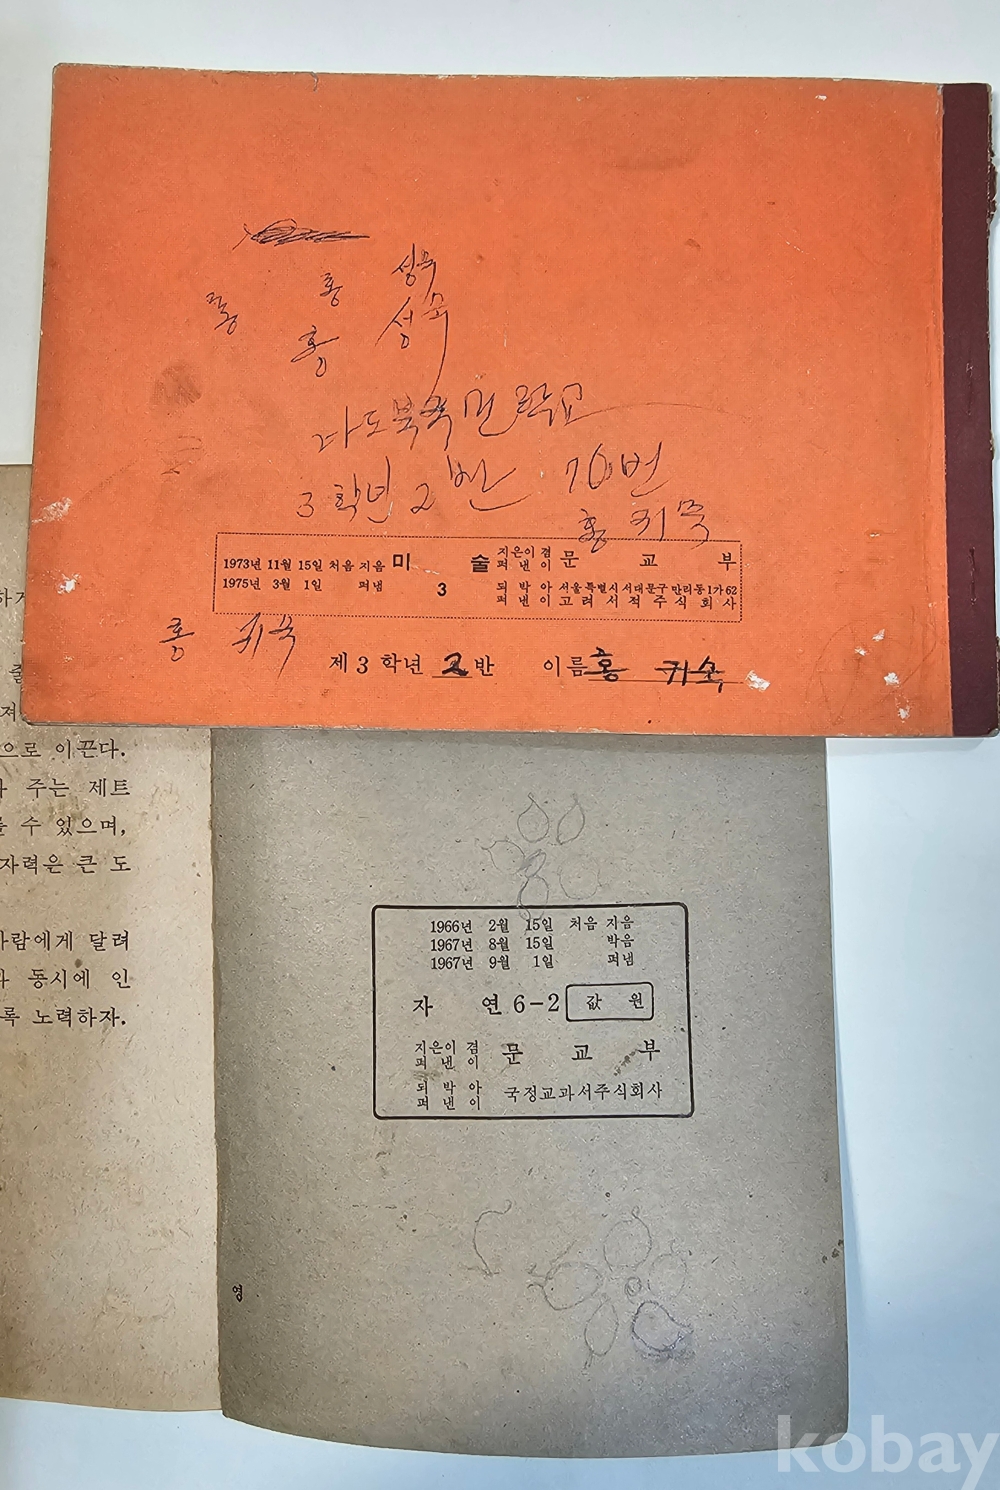 홍 성숙
홍 성숙
홍
다도북국민학교
3학년 2반 70번
홍 귀숙
1973년 11월 15일 처음 지음 미 술 지은이 겸 펴낸이 문 교 부
1975년 3월 1일 펴냄 3 되박아 펴낸이 서울특별시 서대문구 만리동1가62 고려서적주식회사
홍 귀숙
제 3 학년 2 반 이름 홍 귀숙
으로 이끈다.
주는 제트
수 있으며,
자력은 큰 도
사람에게 달려
동시에 인
록 노력하자.
1966년 2월 15일 처음 지음
1967년 8월 15일 박음
1967년 9월 1일 펴냄
자 연 6-2 값 원
지은이 겸 펴낸이 문 교 부
되박아 펴낸이 국정교과서주식회사
영
kobay